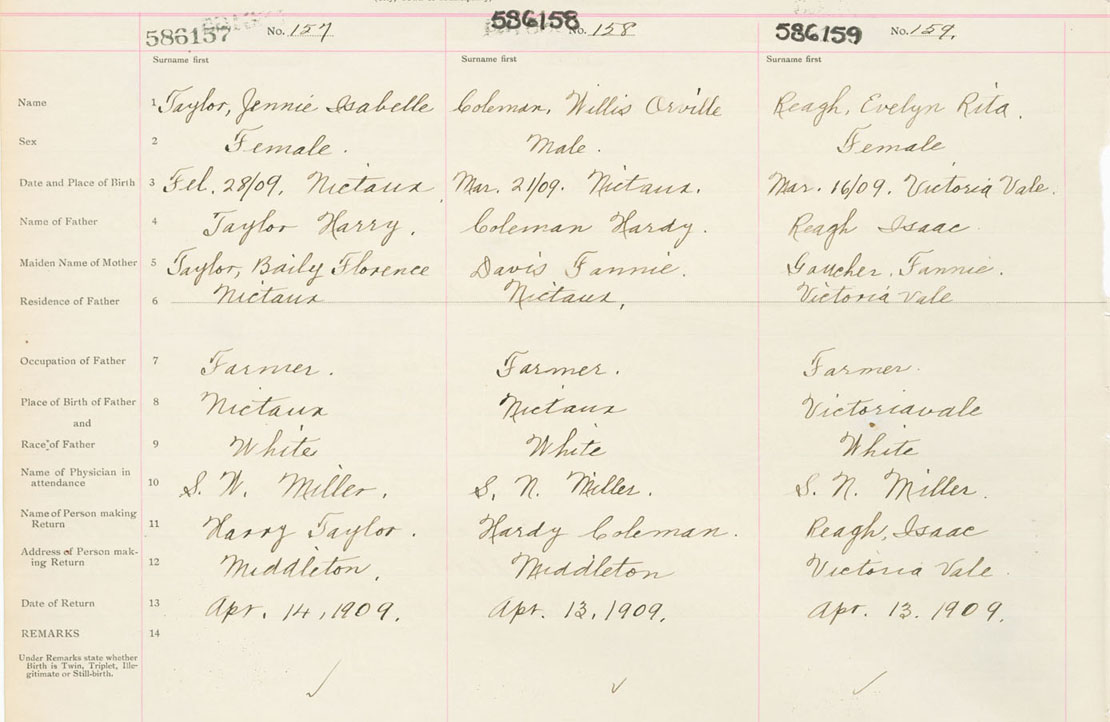 586157 No. 157 586158 No. 158 586159 No. 159.
Surname first Surname first Surname first
Name 1 Taylor, Jennie Isabelle Coleman, Willis Orville Reagh, Evelyn Rita.
Sex 2 Female. Male. Female
Date and Place of Birth 3 Feb. 28/09. Nictaux Mar. 21/09. Nictaux. Mar. 16/09. Victoria Vale.
Name of Father 4 Taylor Harry. Coleman Hardy. Reagh Isaac
Maiden Name of Mother 5 Taylor, Baily Florence Davis Fannie. Goucher, Fannie.
Residence of Father 6 Nictaux Nictaux, Victoria Vale
Occupation of Father 7 Farmer. Farmer. Farmer.
Place of Birth of Father 8 Nictaux Nictaux Victoriavale
and
Race of Father 9 White White White
Name of Physician in
attendance 10 S. N. Miller. S. N. Miller. S. N. Miller.
Name of Person making
Return 11 Harry Taylor. Hardy Coleman. Reagh, Isaac
Address of Person mak-
ing Return 12 Middleton, Middleton Victoria Vale
Date of Return 13 Apr. 14, 1909. Apr. 13, 1909. Apr. 13. 1909.
REMARKS 14
Under Remarks state whether
Birth is Twin, Triplet, Ille-
gitimate or Still-birth.